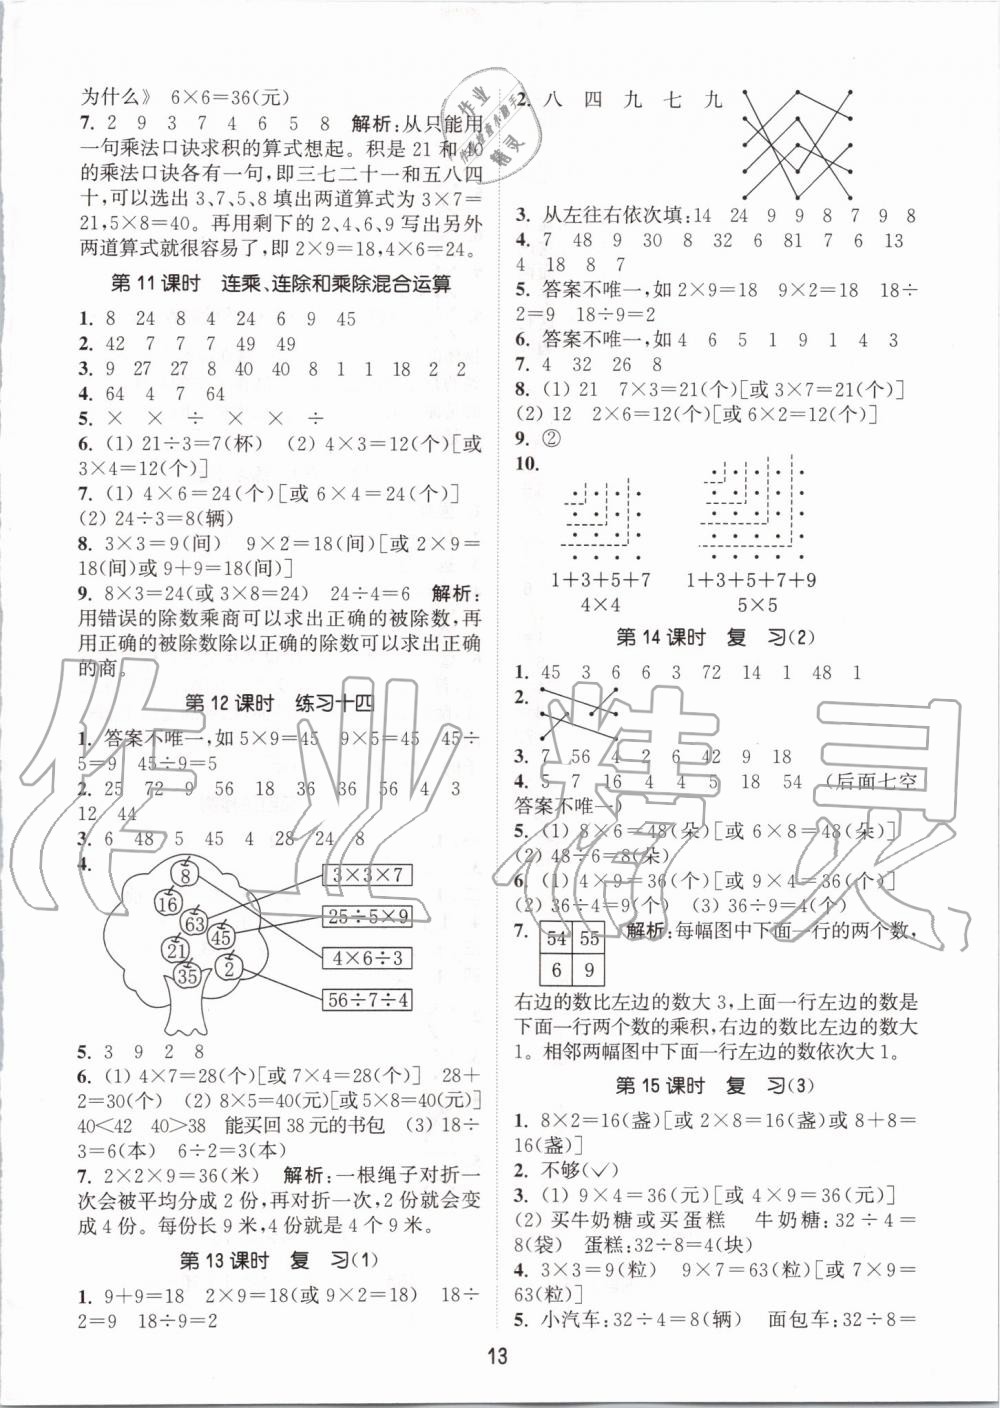 为什么》 6×6=36(元)
7. 2 9 3 7 4 6 5 8 解析:从只能用
一句乘法口诀求积的算式想起。积是 21 和 40
的乘法口诀各有一句,即三七二十一和五八四
十,可以选出 3、7、5、8 填出两道算式为 3×7=
21,5×8=40。再用剩下的 2、4、6、9 写出另外
两道算式就很容易了,即 2×9=18,4×6=24。
第 11 课时 连乘、连除和乘除混合运算
1. 8 24 8 4 24 6 9 45
2. 42 7 7 7 49 49
3. 9 27 27 8 40 40 8 1 1 18 2 2
4. 64 4 7 64
5. × × ÷ × × ÷
6. (1) 21÷3=7(杯) (2) 4×3=12(个)[或
3×4=12(个)]
7. (1) 4×6=24(个)[或 6×4=24(个)]
(2) 24÷3=8(辆)
8. 3×3=9(间) 9×2=18(间)[或 2×9=
18(间)或 9+9=18(间)]
9. 8×3=24(或 3×8=24) 24÷4=6 解析:
用错误的除数乘商可以求出正确的被除数,再
用正确的被除数除以正确的除数可以求出正确
的商。
第 12 课时 练习十四
1. 答案不唯一,如 5×9=45 9×5=45 45÷
5=9 45÷9=5
2. 25 72 9 56 18 36 56 4 3
12 44
3. 6 48 5 45 4 28 24 8
4.
8
16
63
45
21
35
2
3×3×7
25÷5×9
4×6÷3
56÷7÷4
5. 3 9 2 8
6. (1) 4×7=28(个)[或 7×4=28(个)] 28+
2=30(个) (2) 8×5=40(元)[或 5×8=40(元)]
40<42 40>38 能买回 38 元的书包 (3) 18÷
3=6(本) 6÷2=3(本)
7. 2×2×9=36(米) 解析:一根绳子对折一
次会被平均分成 2 份,再对折一次,2 份就会变
成 4 份。每份长 9 米,4 份就是 4 个 9 米。
第 13 课时 复 习(1)
1. 9+9=18 2×9=18(或 9×2=18) 18÷
2=9 18÷9=2
2. 八 四 九 七 九
3. 从左往右依次填:14 24 9 9 8 7 9 8
4. 7 48 9 30 8 32 6 81 7 6 13
4 18 8 7
5. 答案不唯一,如 2×9=18 9×2=18 18÷
2=9 18÷9=2
6. 答案不唯一,如 4 6 5 1 9 1 4 3
7. 4 32 26 8
8. (1) 21 7×3=21(个)[或 3×7=21(个)]
(2) 12 2×6=12(个)[或 6×2=12(个)]
9. ②
10.
1+3+5+7
4×4
1+3+5+7+9
5×5
第 14 课时 复 习(2)
1. 45 3 6 6 3 72 14 1 48 1
2.
3. 7 56 4 2 6 42 9 18
4. 5 7 16 4 4 5 18 54 (后面七空
答案不唯一)
5. (1) 8×6=48(朵)[或 6×8=48(朵)]
(2) 48÷6=8(朵)
6. (1) 4×9=36(元)[或 9×4=36(元)]
(2) 36÷4=9(元) (3) 36÷9=4(个)
7.
54 55
6 9
解析:每幅图中下面一行的两个数,
右边的数比左边的数大 3,上面一行左边的数是
下面一行两个数的乘积,右边的数比左边的数大
1。相邻两幅图中下面一行左边的数依次大 1。
第 15 课时 复 习(3)
1. 8×2=16(盏)[或 2×8=16(盏)或 8+8=
16(盏)]
2. 不够(✓)
3. (1) 9×4=36(元)[或 4×9=36(元)]
(2) 买牛奶糖或买蛋糕 牛奶糖:32÷4=
8(袋) 蛋糕:32÷8=4(块)
4. 3×3=9(粒) 9×7=63(粒)[或 7×9=
63(粒)]
5. 小汽车:32÷4=8(辆) 面包车:32÷8=
13
作业精灵